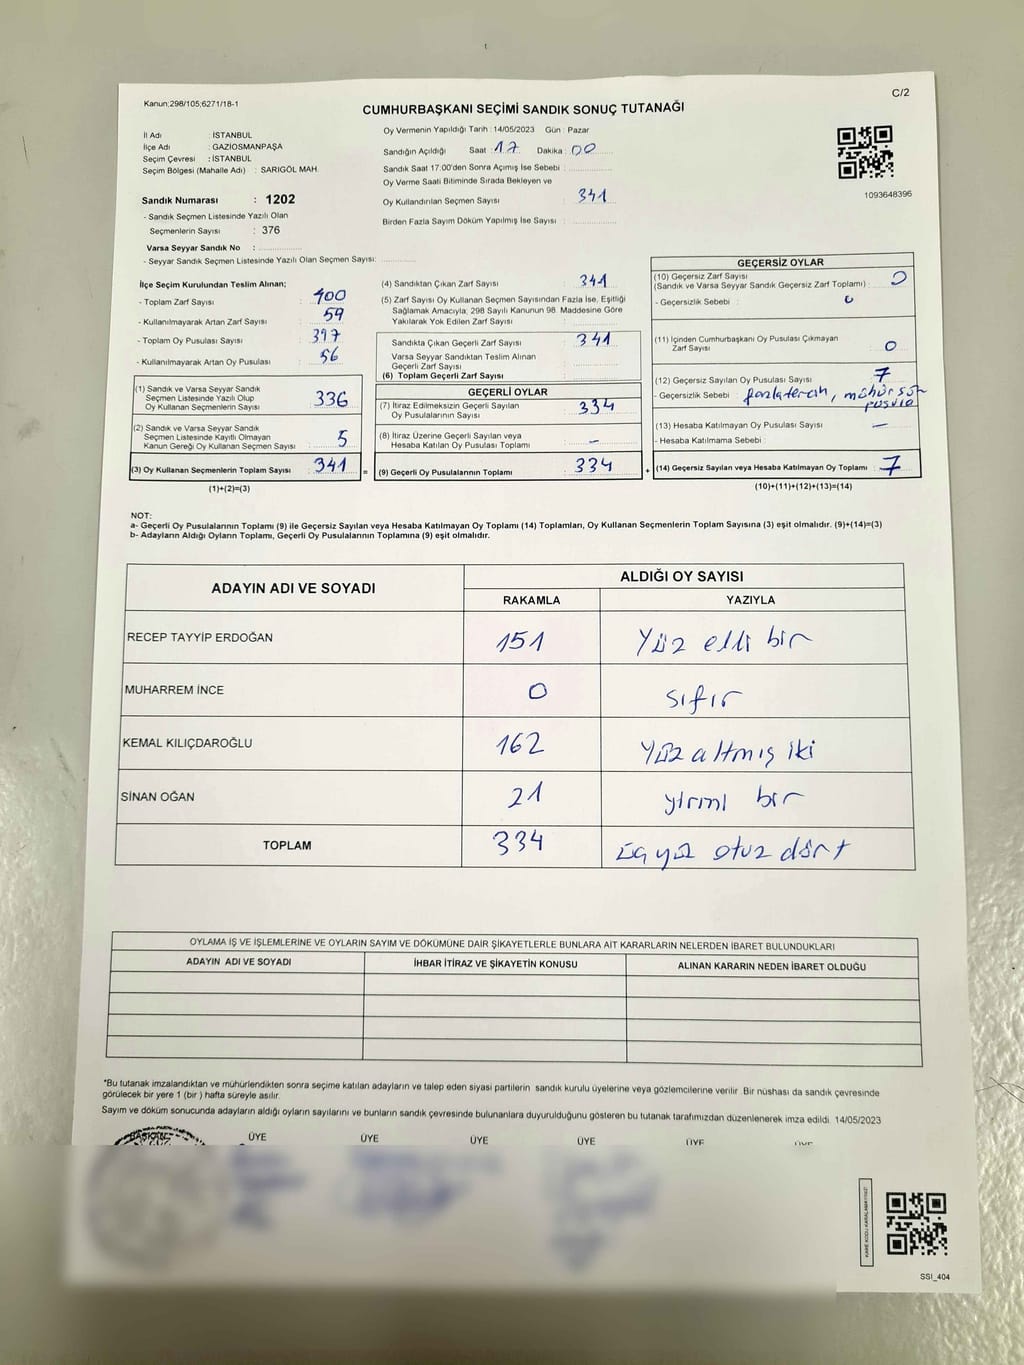 C/2
Kanun;298/105;6271/18-1
CUMHURBAŞKANI SEÇİMİ SANDIK SONUÇ TUTANAĞI
İl Adı : İSTANBUL
İlçe Adı : GAZİOSMANPAŞA
Seçim Çevresi : İSTANBUL
Seçim Bölgesi (Mahalle Adı) : SARIGÖL MAH.
Oy Vermenin Yapıldığı Tarih :14/05/2023 Gün : Pazar
Sandığın Açıldığı Saat : 17 Dakika : 00
Sandık Saat 17.00'den Sonra Açımış İse Sebebi :
Oy Verme Saati Bitiminde Sırada Bekleyen ve
Oy Kullandırılan Seçmen Sayısı : 341
Birden Fazla Sayım Döküm Yapılmış İse Sayısı :
1093648396
Sandık Numarası : 1202
- Sandık Seçmen Listesinde Yazılı Olan
Seçmenlerin Sayısı : 376
Varsa Seyyar Sandık No :
- Seyyar Sandık Seçmen Listesinde Yazılı Olan Seçmen Sayısı:
İlçe Seçim Kurulundan Teslim Alınan;
- Toplam Zarf Sayısı : 400
- Kullanılmayarak Artan Zarf Sayısı : 59
- Toplam Oy Pusulası Sayısı : 397
- Kullanılmayarak Artan Oy Pusulası : 56
(1) Sandık ve Varsa Seyyar Sandık
Seçmen Listesinde Yazılı Olup
Oy Kullanan Seçmenlerin Sayısı : 336
(2) Sandık ve Varsa Seyyar Sandık
Seçmen Listesinde Kayıtlı Olmayan
Kanun Gereği Oy Kullanan Seçmen Sayısı : 5
(3) Oy Kullanan Seçmenlerin Toplam Sayısı : 341 =
(1)+(2)=(3)
(4) Sandıktan Çıkan Zarf Sayısı : 341
(5) Zarf Sayısı Oy Kullanan Seçmen Sayısından Fazla İse, Eşitliği
Sağlamak Amacıyla; 298 Sayılı Kanunun 98. Maddesine Göre
Yakılarak Yok Edilen Zarf Sayısı :
Sandıkta Çıkan Geçerli Zarf Sayısı : 341
Varsa Seyyar Sandıktan Teslim Alınan
Geçerli Zarf Sayısı :
(6) Toplam Geçerli Zarf Sayısı :
GEÇERLİ OYLAR
(7) İtiraz Edilmeksizin Geçerli Sayılan
Oy Pusulalarının Sayısı : 334
(8) İtiraz Üzerine Geçerli Sayılan veya
Hesaba Katılan Oy Pusulası Toplamı : –
(9) Geçerli Oy Pusulalarının Toplamı : 334 +
GEÇERSİZ OYLAR
(10) Geçersiz Zarf Sayısı
(Sandık ve Varsa Seyyar Sandık Geçersiz Zarf Toplamı) : 0
- Geçersizlik Sebebi : 0
(11) İçinden Cumhurbaşkanı Oy Pusulası Çıkmayan
Zarf Sayısı : 0
(12) Geçersiz Sayılan Oy Pusulası Sayısı : 7
- Geçersizlik Sebebi : fazla tercih,
(13) Hesaba Katılmayan Oy Pusulası Sayısı : –
- Hesaba Katılmama Sebebi :
(14) Geçersiz Sayılan veya Hesaba Katılmayan Oy Toplamı : 7
(10)+(11)+(12)+(13)=(14)
NOT:
a- Geçerli Oy Pusulalarının Toplamı (9) ile Geçersiz Sayılan veya Hesaba Katılmayan Oy Toplamı (14) Toplamları, Oy Kullanan Seçmenlerin Toplam Sayısına (3) eşit olmalıdır. (9)+(14)=(3)
b- Adayların Aldığı Oyların Toplamı, Geçerli Oy Pusulalarının Toplamına (9) eşit olmalıdır.
ADAYIN ADI VE SOYADI
ALDIĞI OY SAYISI
RAKAMLA YAZIYLA
RECEP TAYYİP ERDOĞAN 151 Yüz elli bir
MUHARREM İNCE 0 sıfır
KEMAL KILIÇDAROĞLU 162 Yüz altmış iki
SİNAN OĞAN 21 yirmi bir
TOPLAM 334 üçyüz otuz dört
OYLAMA İŞ VE İŞLEMLERİNE VE OYLARIN SAYIM VE DÖKÜMÜNE DAİR ŞİKAYETLERLE BUNLARA AİT KARARLARIN NELERDEN İBARET BULUNDUKLARI
ADAYIN ADI VE SOYADI İHBAR İTİRAZ VE ŞİKAYETİN KONUSU ALINAN KARARIN NEDEN İBARET OLDUĞU
*Bu tutanak imzalandıktan ve mühürlendikten sonra seçime katılan adayların ve talep eden siyasi partilerin sandık kurulu üyelerine veya gözlemcilerine verilir. Bir nüshası da sandık çevresinde
görülecek bir yere 1 (bir ) hafta süreyle asılır.
Sayım ve döküm sonucunda adayların aldığı oyların sayılarını ve bunların sandık çevresinde bulunanlara duyurulduğunu gösteren bu tutanak tarafımızdan düzenlenerek imza edildi. 14/05/2023
BAŞKAN ÜYE ÜYE ÜYE ÜYE ÜYE ÜYE
KARE KODU KARALAMAYINIZ!
SSI_404